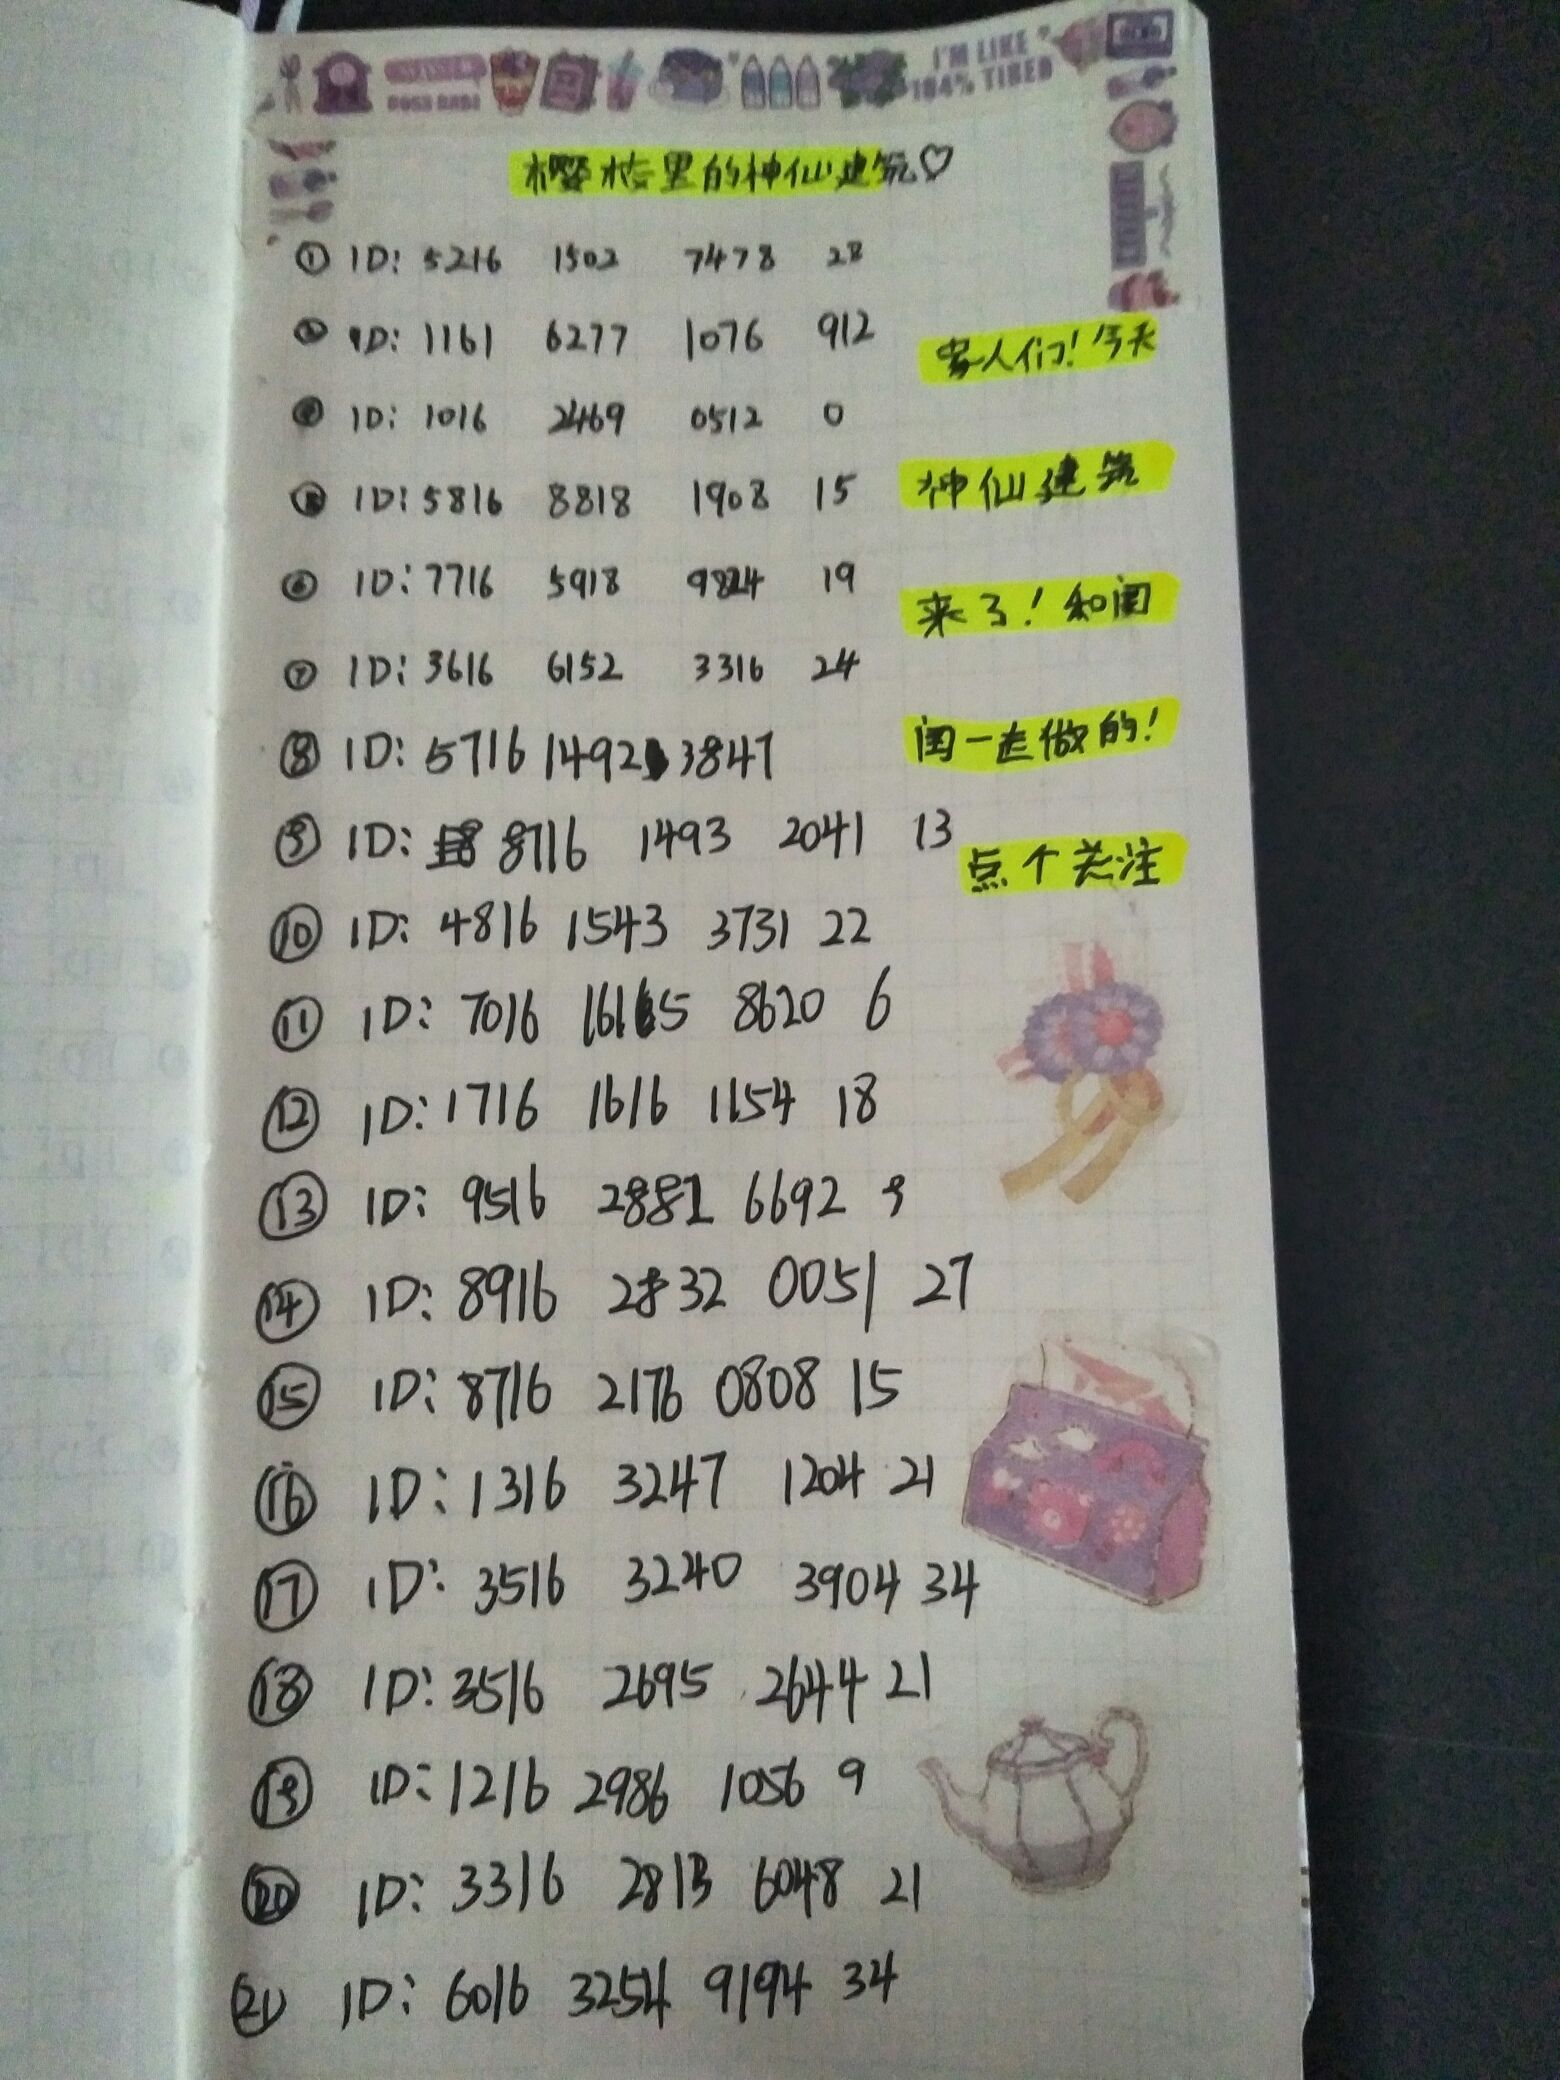 I'M LIKE
104% TIRED
樱校里的神仙建筑♡
① ID: 5216 1502 7478 28
ID: 1161 6277 1076 912
ID: 1016 2469 0512 0
ID: 5816 8818 1908 15
⑥ ID: 7716 5918 9824 19
⑦ ID: 3616 6152 3316 24
⑧ ID: 5716 1492 3847
⑨ ID: 8716 1493 2041 13
⑩ ID: 4816 1543 3731 22
⑪ ID: 7016 1615 8620 6
⑫ ID: 1716 1616 1154 18
⑬ ID: 9516 2881 6692 9
⑭ ID: 8916 2832 0051 27
⑮ ID: 8716 2176 0808 15
⑯ ID: 1316 3247 1204 21
⑰ ID: 3516 3240 3904 34
⑱ ID: 3516 2695 2644 21
⑲ ID: 1216 2986 1056 9
⑳ ID: 3316 2813 6048 21
㉑ ID: 6016 3254 9194 34
家人们!今天
神仙建筑
来了!和闺
闺一起做的!
点个关注